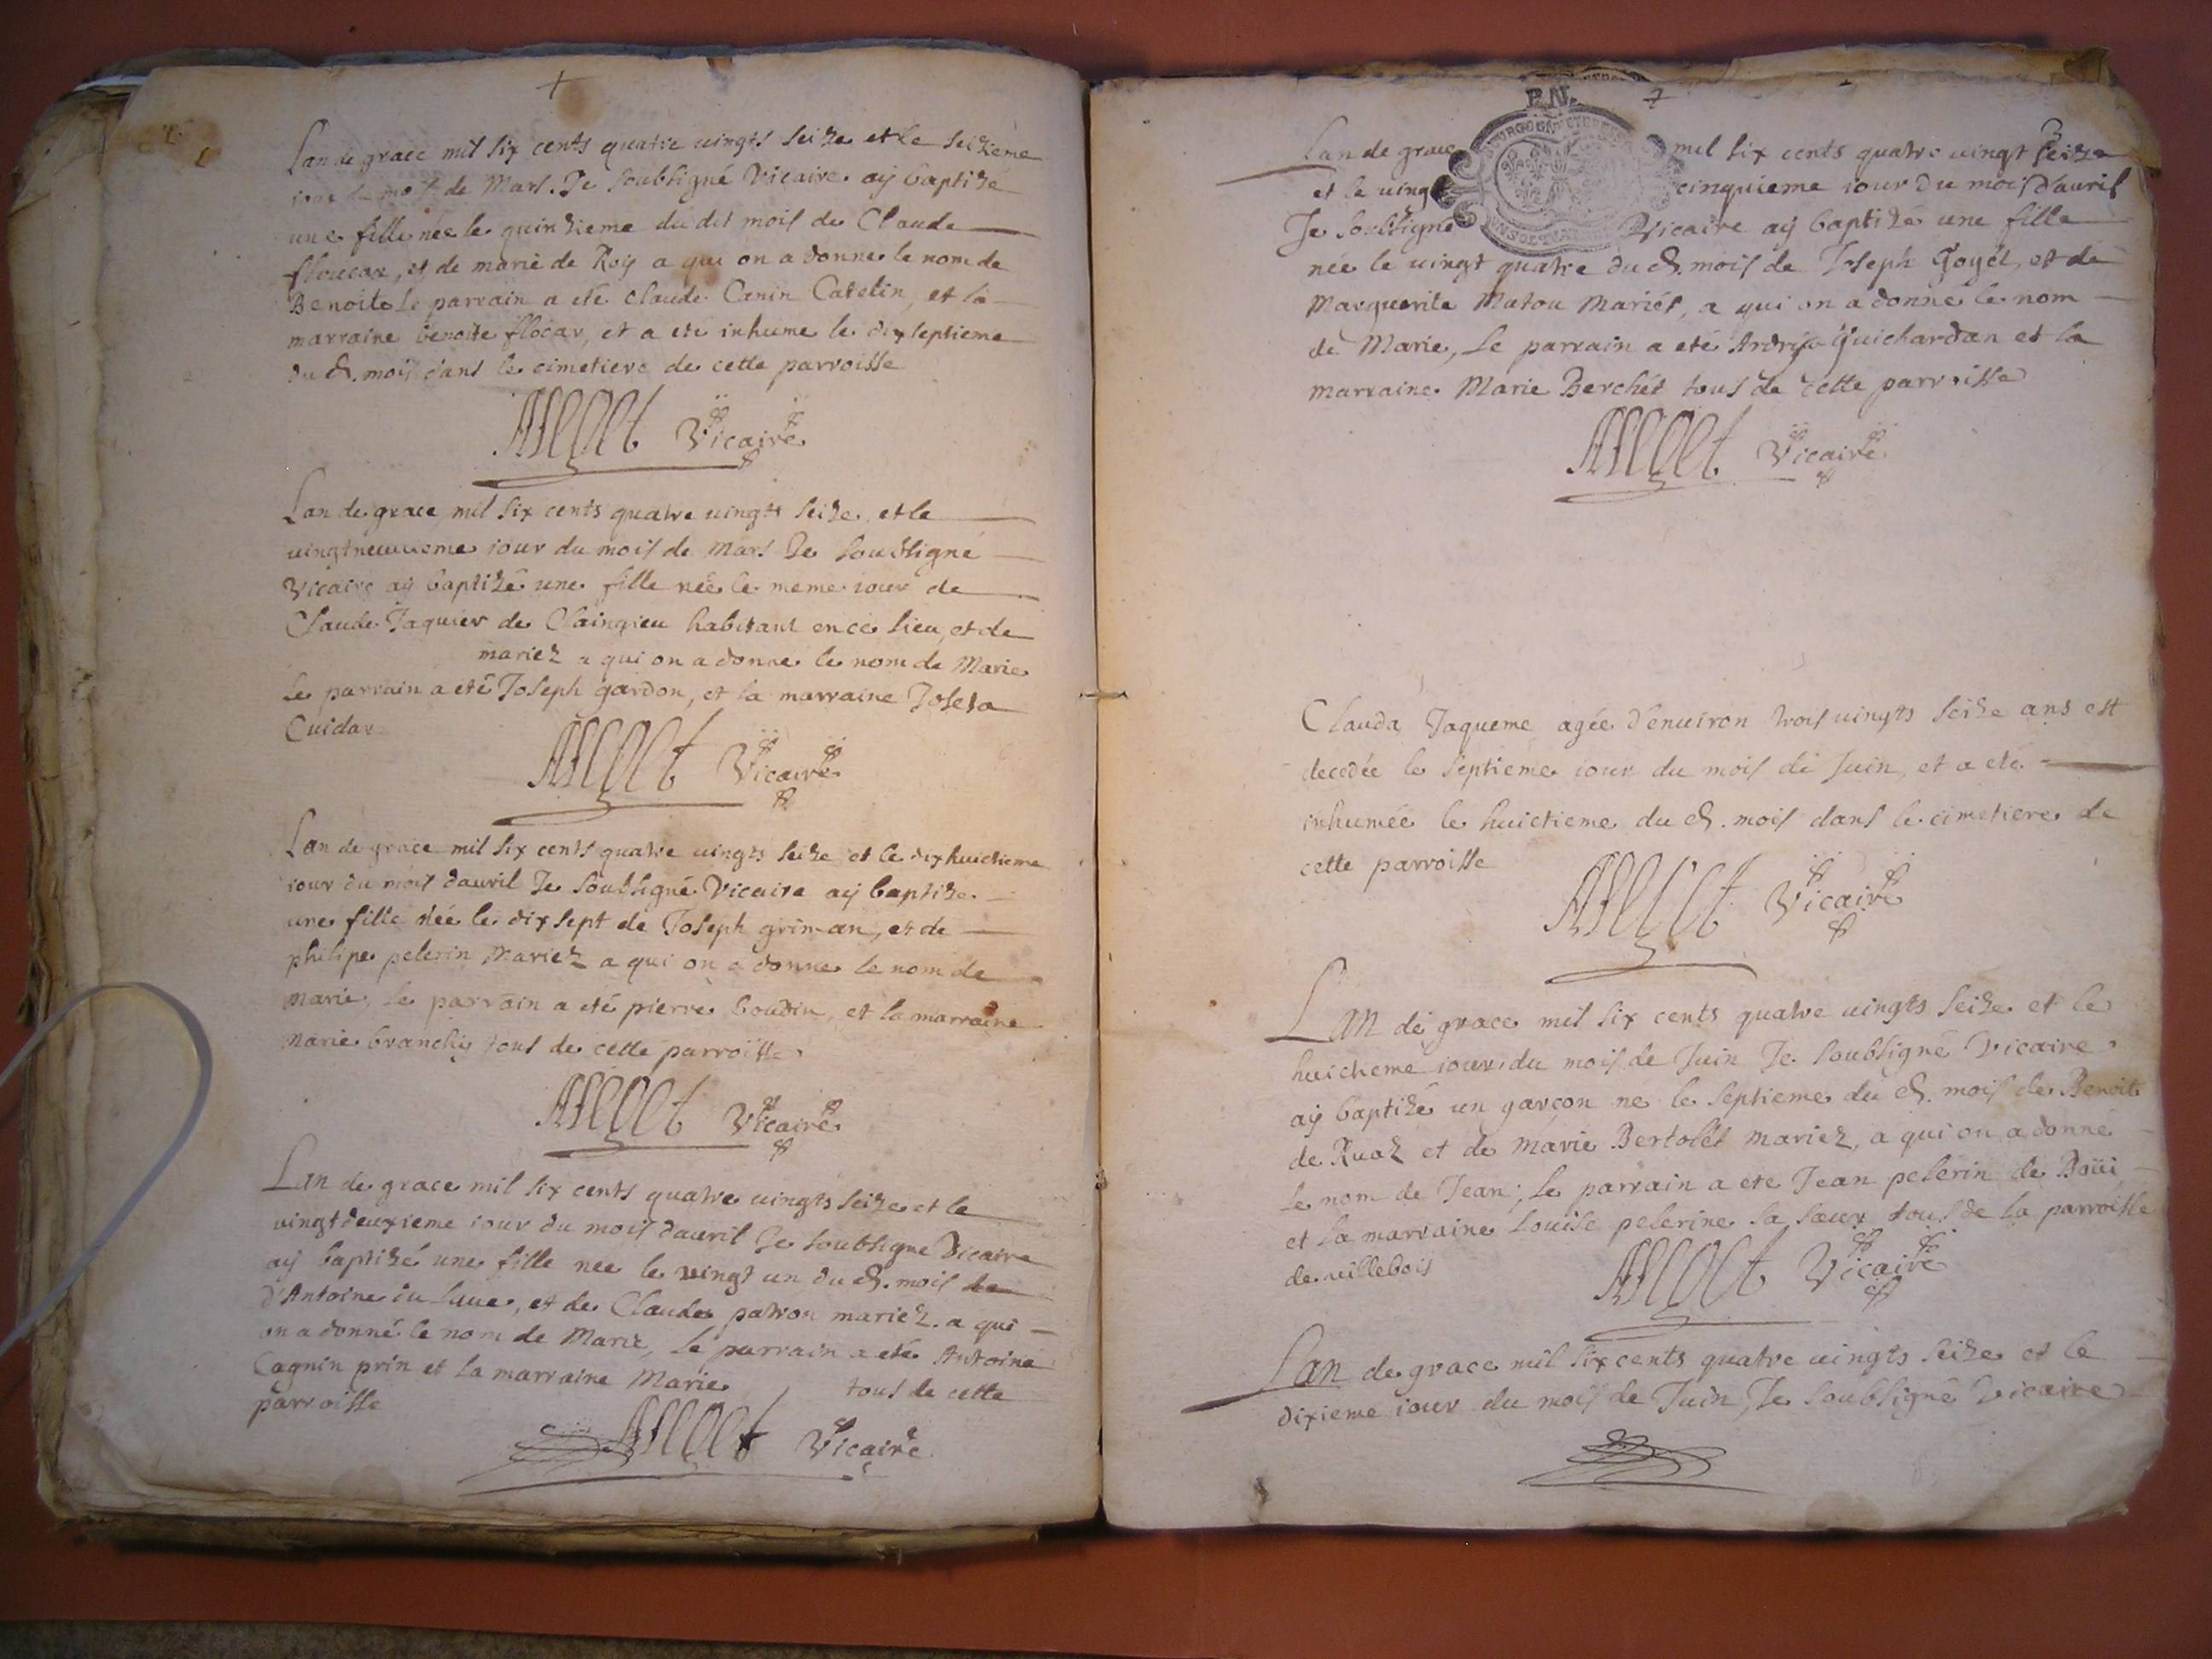 Lan de grace mil six cents quatre vingts seize et le seizieme
iour du mois de Mars. Je soubsigné Vicaire aÿ baptizé
une fille née le quinzieme du dit mois de Claude
floucar, et de marie de Roÿ a qui on a donne le nom de
Benoite le parrain a eté Claude Canin Catelin, et la
marraine benoite flocar, et a eté inhume le dixseptieme
dud. mois dans le cimetiere de cette parroisse
Vicaire
Lan de grace mil six cents quatre vingts seize, et le
vingtneuuieme iour du mois de Mars Je soubsigné
Vicaire aÿ baptizé une fille née le meme iour de
Claude Jaquier de Claingieu habitant en ce lieu, et de
mariez a qui on a donne le nom de Marie
Le parrain a eté Joseph gardon, et la marraine Joseta
Cuidar
Vicaire
Lan de grace mil six cents quatre vingts seize et le dixhuictieme
iour du mois dauril Je soubsigné Vicaire aÿ baptize
une fille née le dix sept de Joseph griman, et de
philipe pelerin Mariez a qui on a donne le nom de
marie, le parrain a eté pierre boudin, et la marraine
Marie branchy tous de cette parroisse
Vicaire
Lan de grace mil six cents quatre vingts seize et le
vingtdeuxieme iour du mois dauril Je soubsigne Vicaire
aÿ baptizé une fille née le vingt un du d. mois de
d'Antoine du luue, et de Claude patron mariez. a qui
on a donné le nom de Marie, le parrain a eté Antoine
Cagnin prin et la marraine Marie tous de cette
parroisse
Vicaire
P.N.
Lan de grace mil six cents quatre vingt seize
et le vingt cinquieme iour du mois d'auril
Je soubsigné Vicaire aÿ baptizé une fille
née le vingt quatre du d. mois de Joseph Goyét, et de
Marguerite Matou Mariés, a qui on a donné le nom
de Marie, Le parrain a eté Guichardan et la
marraine Marie Berchét tous de cette parroisse
Vicaire
Clauda Jaqueme agée d'enuiron trois vingts seize ans est
decedée le septieme iour du mois de Juin, et a eté
inhumée le huictieme du d. mois dans le cimetiere de
cette parroisse
Vicaire
Lan de grace mil six cents quatre vingts seize et le
huictieme iour du mois de Juin Je soubsigné Vicaire
aÿ baptizé un garçon né le septieme du d. mois de Benoit
de Ruaz et de Marie Bertolét mariez, a qui on a donné
le nom de Jean; le parrain a ete Jean pelerin de Boüi
et la marraine Louise pelerine sa soeur tous de la parroisse
de villebois
Vicaire
Lan de grace mil six cents quatre vingts seize et le
dixieme iour du mois de Juin, Je soubsigné Vicaire